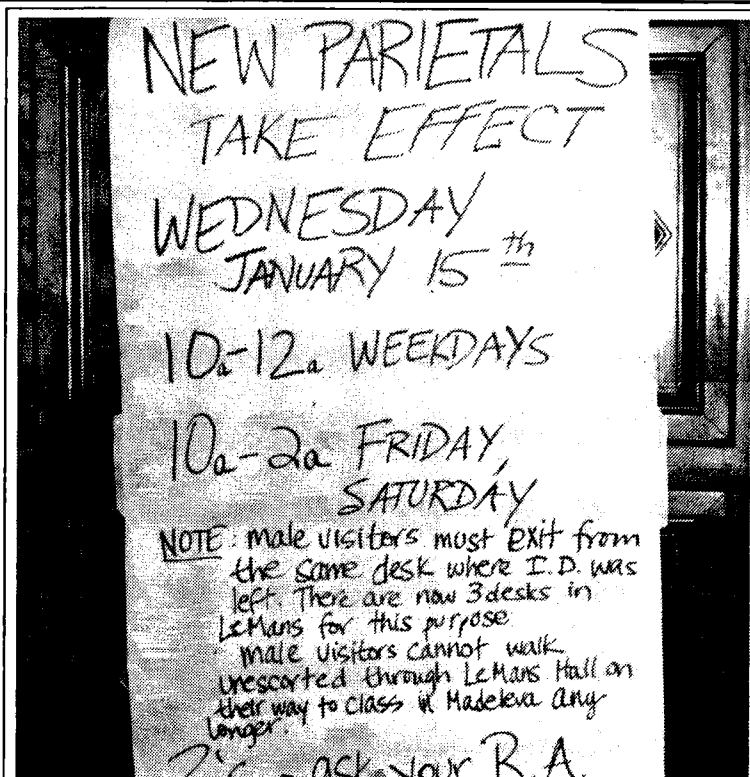 NEW PARIETALS
TAKE EFFECT
WEDNESDAY
JANUARY 15th
10a-12a WEEKDAYS
10a-2a FRIDAY,
SATURDAY
NOTE: male visitors must exit from
the same desk where I.D. was
left. There are now 3 desks in
LeMans for this purpose
male visitors cannot walk
unescorted through LeMans Hall on
their way to class in Madeleva any
longer.
ask your R.A.